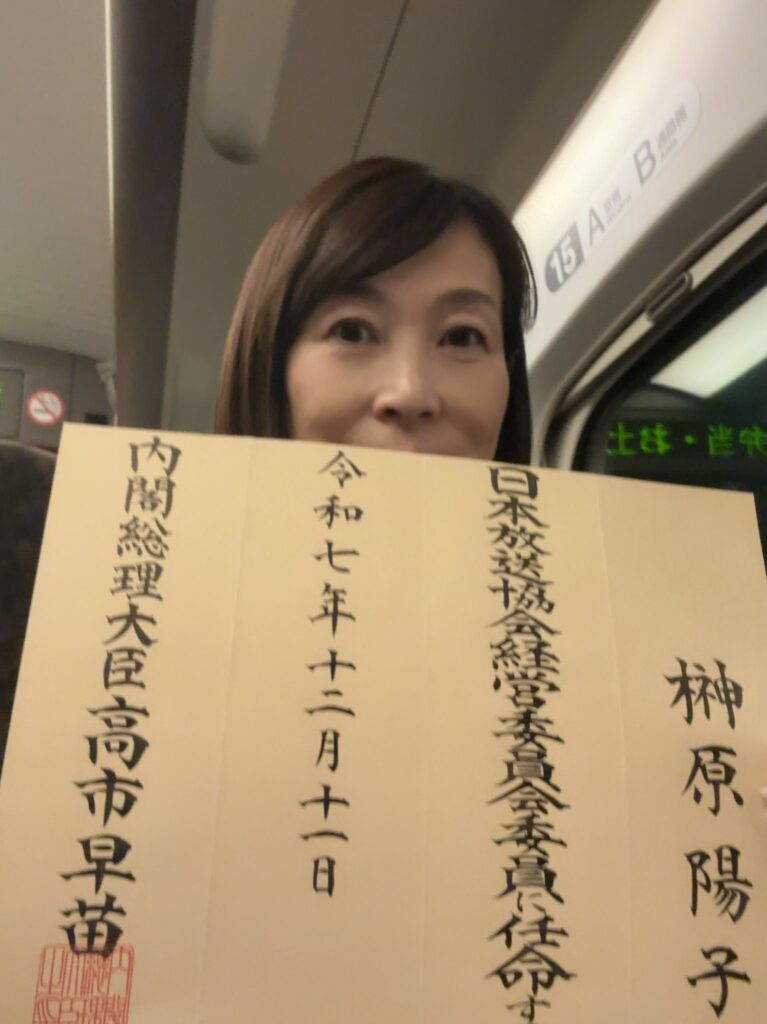 榊原陽子
日本放送協会経営委員会委員に任命す
令和七年十二月十一日
内閣総理大臣高市早苗
15 A B